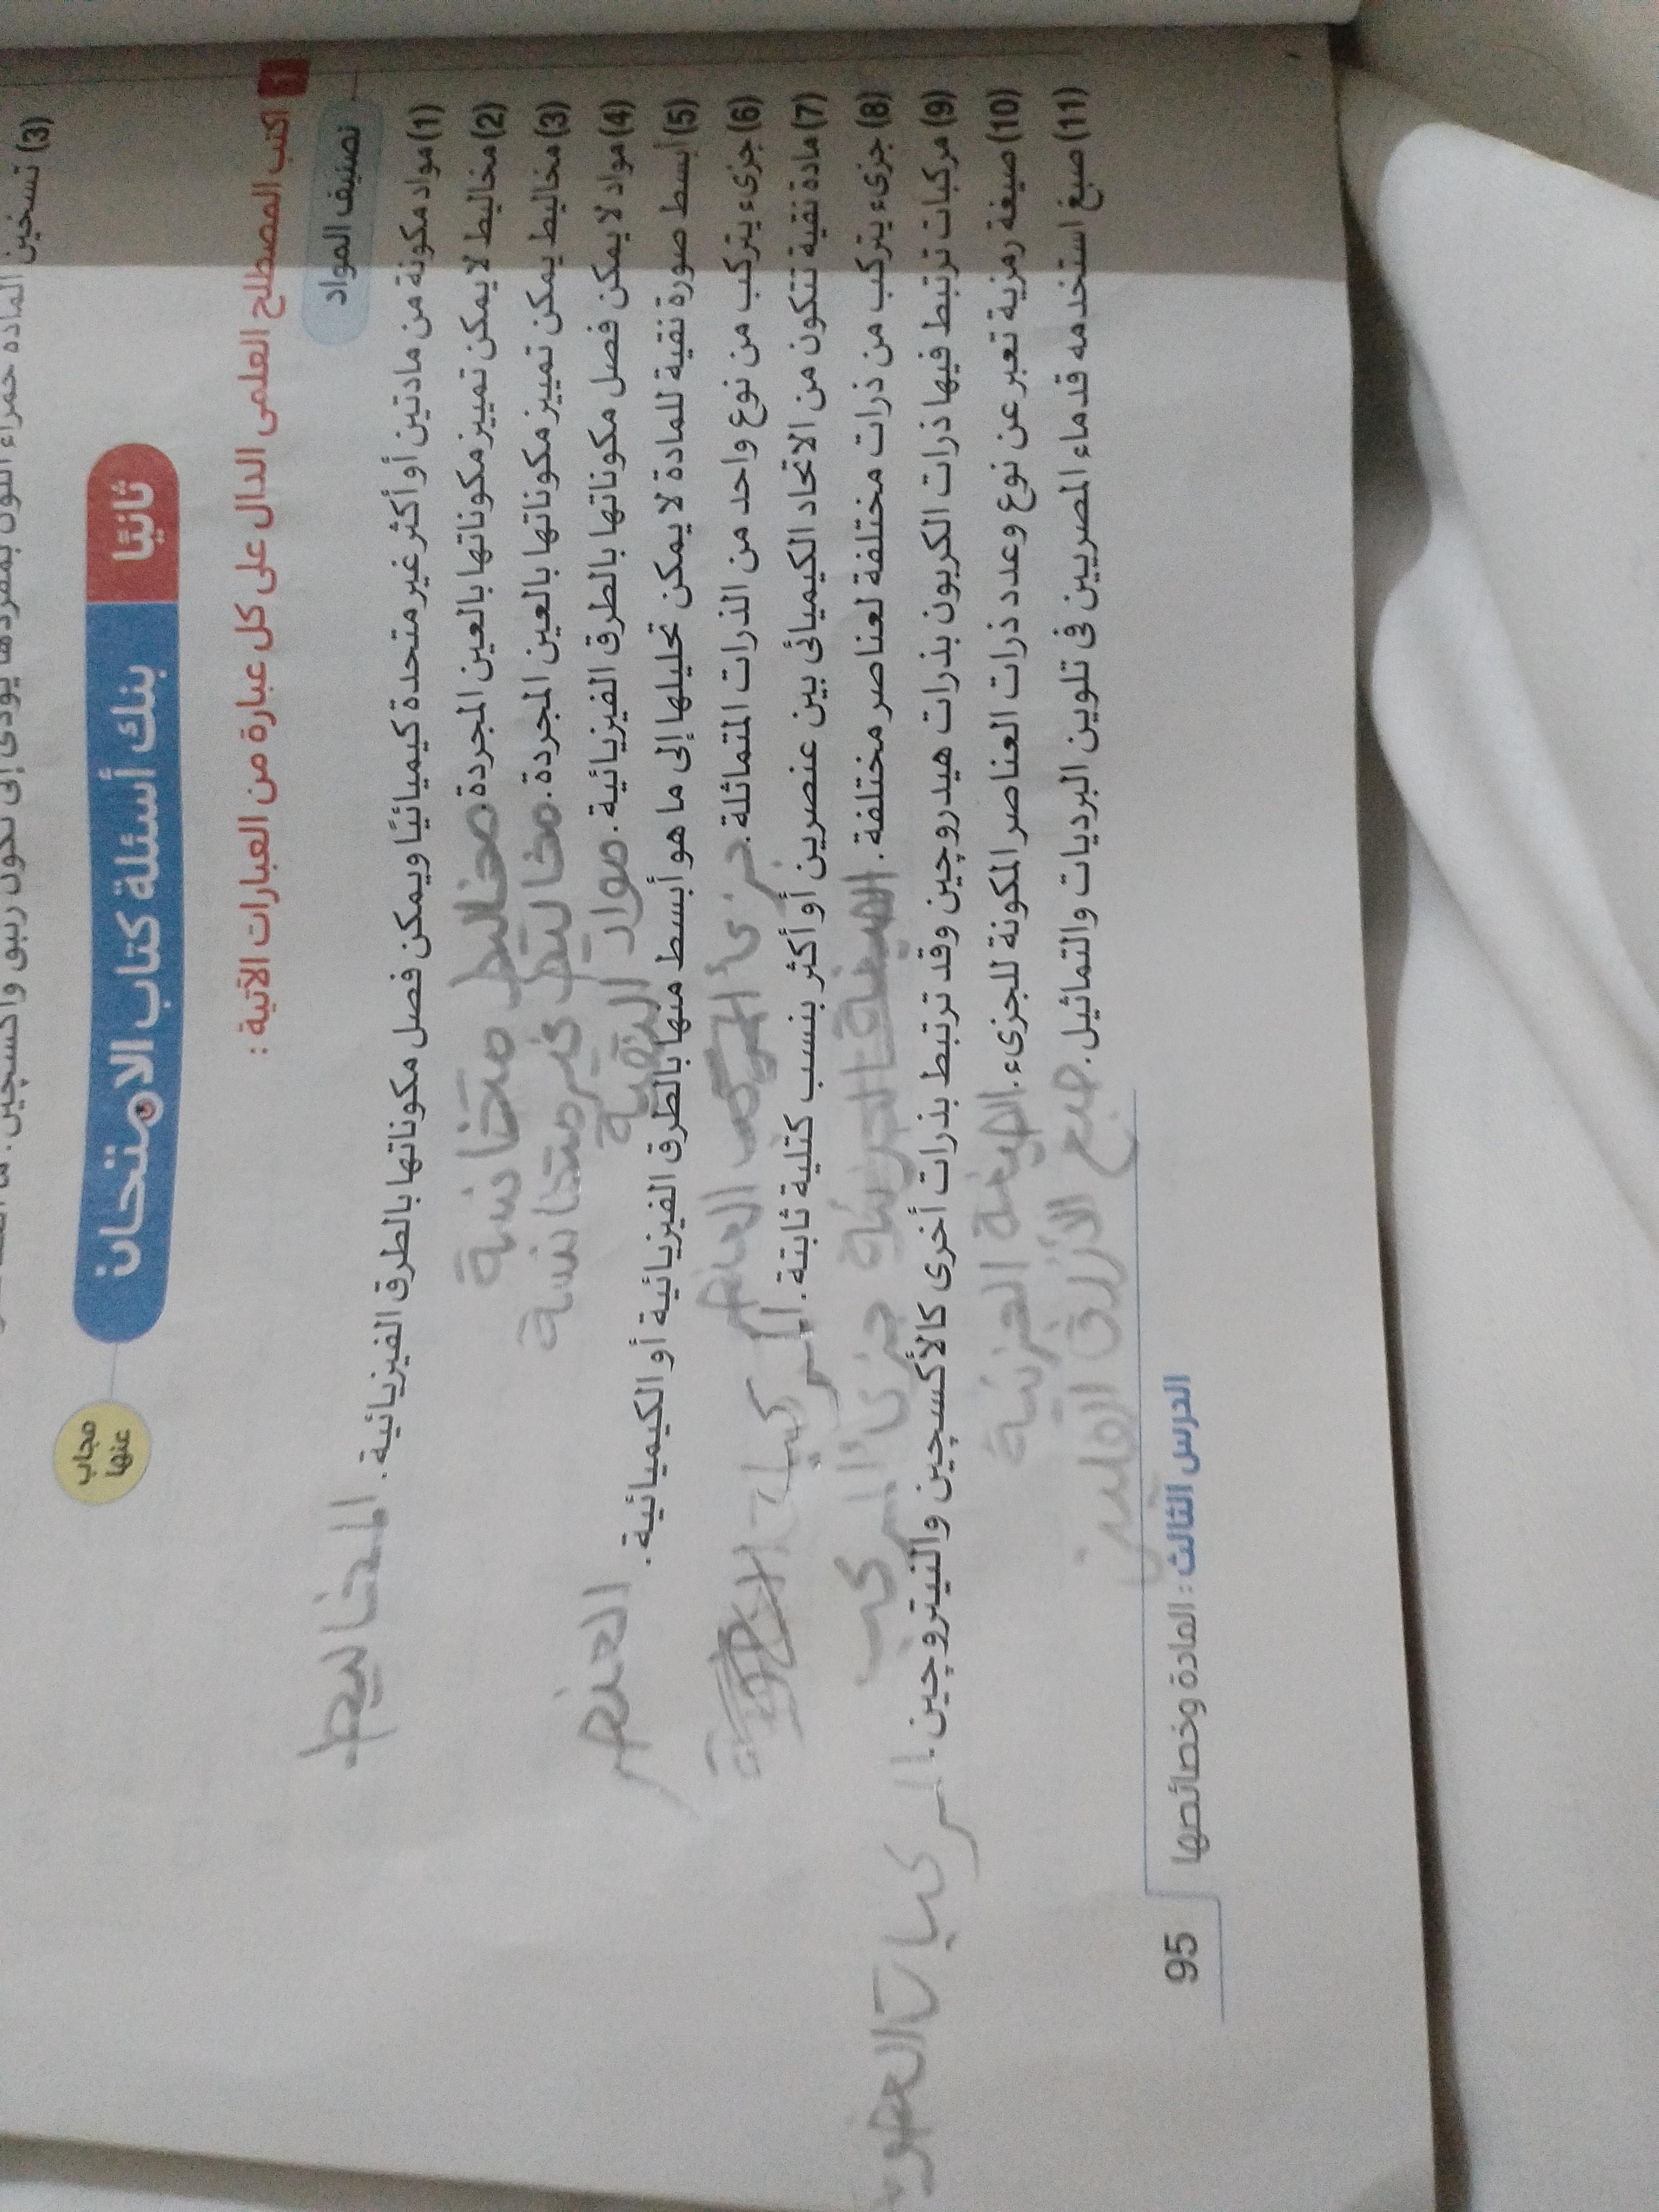 (3) تسخين المادة حمراء اللون بمفردها يؤدى إلى تكون زئبق وأكسجين.
ثانيًا بنك أسئلة كتاب الامتحان مجاب عنها
1 اكتب المصطلح العلمى الدال على كل عبارة من العبارات الآتية :
تصنيف المواد
(1) مواد مكونة من مادتين أو أكثر غير متحدة كيميائيًا ويمكن فصل مكوناتها بالطرق الفيزيائية. المخاليط
(2) مخاليط لا يمكن تمييز مكوناتها بالعين المجردة. مخاليط متجانسة
(3) مخاليط يمكن تمييز مكوناتها بالعين المجردة. مخاليط غير متجانسة
(4) مواد لا يمكن فصل مكوناتها بالطرق الفيزيائية. مواد النقية
(5) أبسط صورة نقية للمادة لا يمكن تحليلها إلى ما هو أبسط منها بالطرق الفيزيائية أو الكيميائية. العنصر
(6) جزىء يتركب من نوع واحد من الذرات المتماثلة. جزىء العنصر
(7) مادة نقية تتكون من الاتحاد الكيميائى بين عنصرين أو أكثر بنسب كتلية ثابتة. المركبات
(8) جزىء يتركب من ذرات مختلفة لعناصر مختلفة. جزىء المركب
(9) مركبات ترتبط فيها ذرات الكربون بذرات هيدروچين وقد ترتبط بذرات أخرى كالأكسچين والنيتروچين. المركبات العضو
(10) صيغة رمزية تعبر عن نوع وعدد ذرات العناصر المكونة للجزىء. الصيغة الجزئية
(11) صبغ استخدمه قدماء المصريين فى تلوين البرديات والتماثيل. صبغ الأزرق
95 الدرس الثالث : المادة وخصائصها